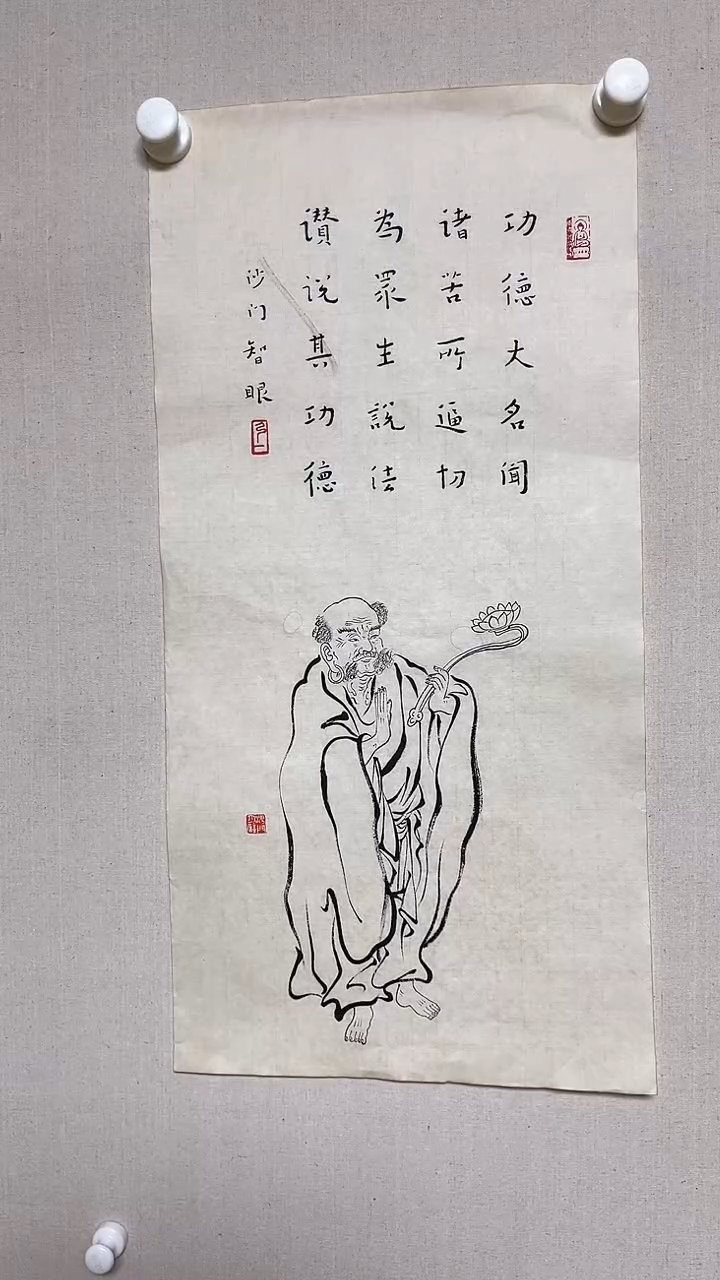 功德大名闻
诸苦所逼切
為眾生說法
讃说其功德
沙门智眼